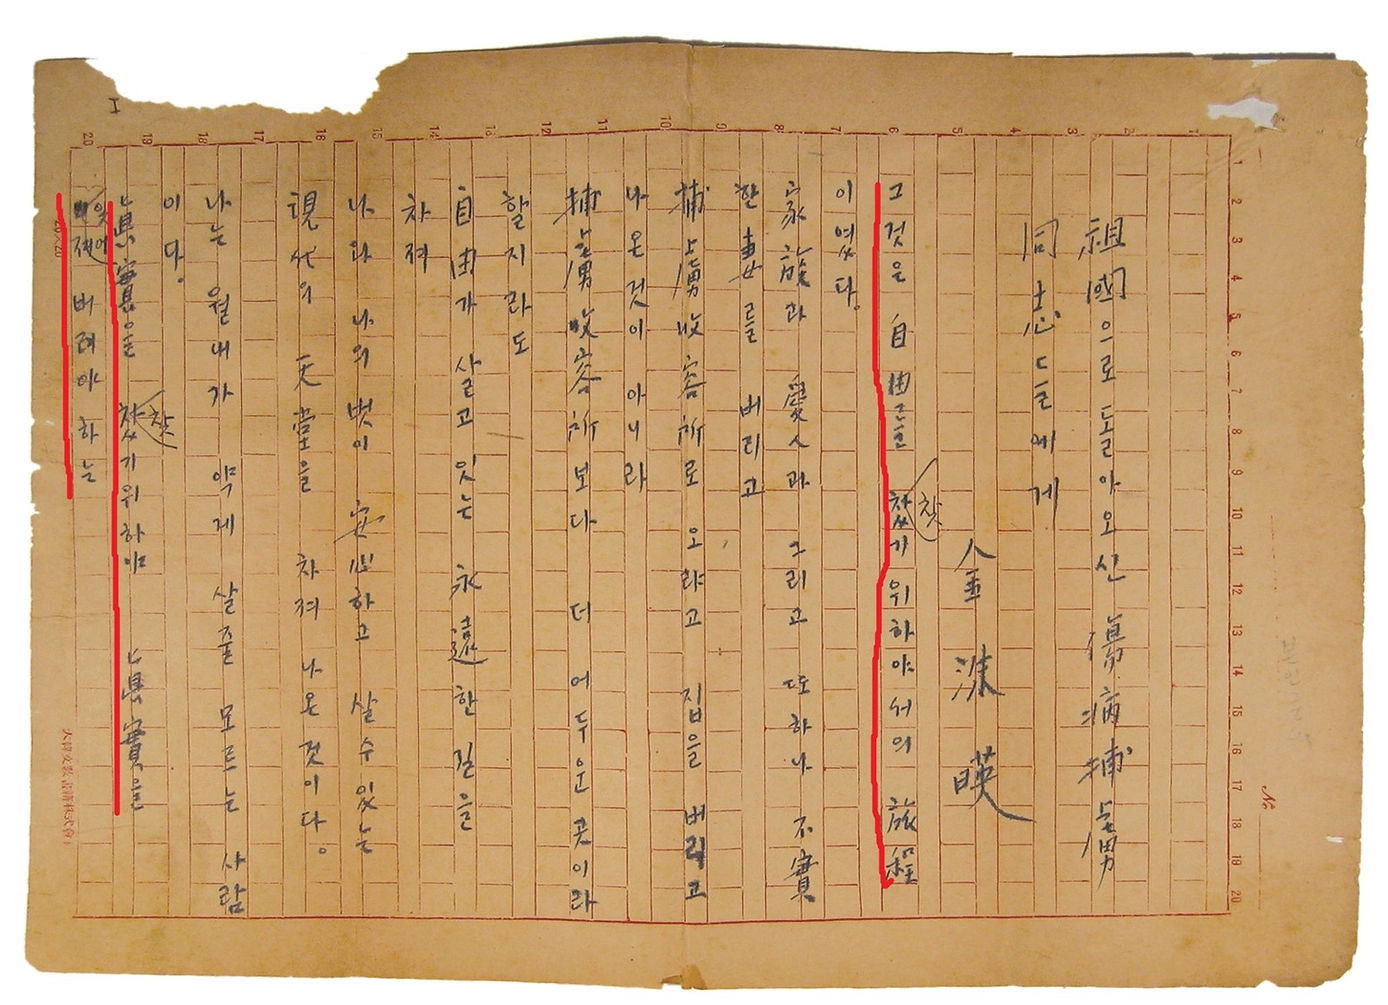 祖國으로 돌아오신 傷病捕虜
同志들에게
金洙暎
그것은 自由를 찾기위하야서의 旅程
이였다.
家族과 愛人과 그리고 또하나 不實
한 妻를 버리고
捕虜收容所로 오랴고 집을 버리고
나온것이 아니라
捕虜收容所보다 더 어두운 곳이라
할지라도
自由가 살고있는 永遠한 길을
차저
나와 나의 벗이 安心하고 살수있는
現代의 天堂을 차저 나온것이다.
나는 월내가 약게 살줄 모르는 사람
이다.
眞實을 찾기위하야 眞實을
잊어버려야 하는
20×20